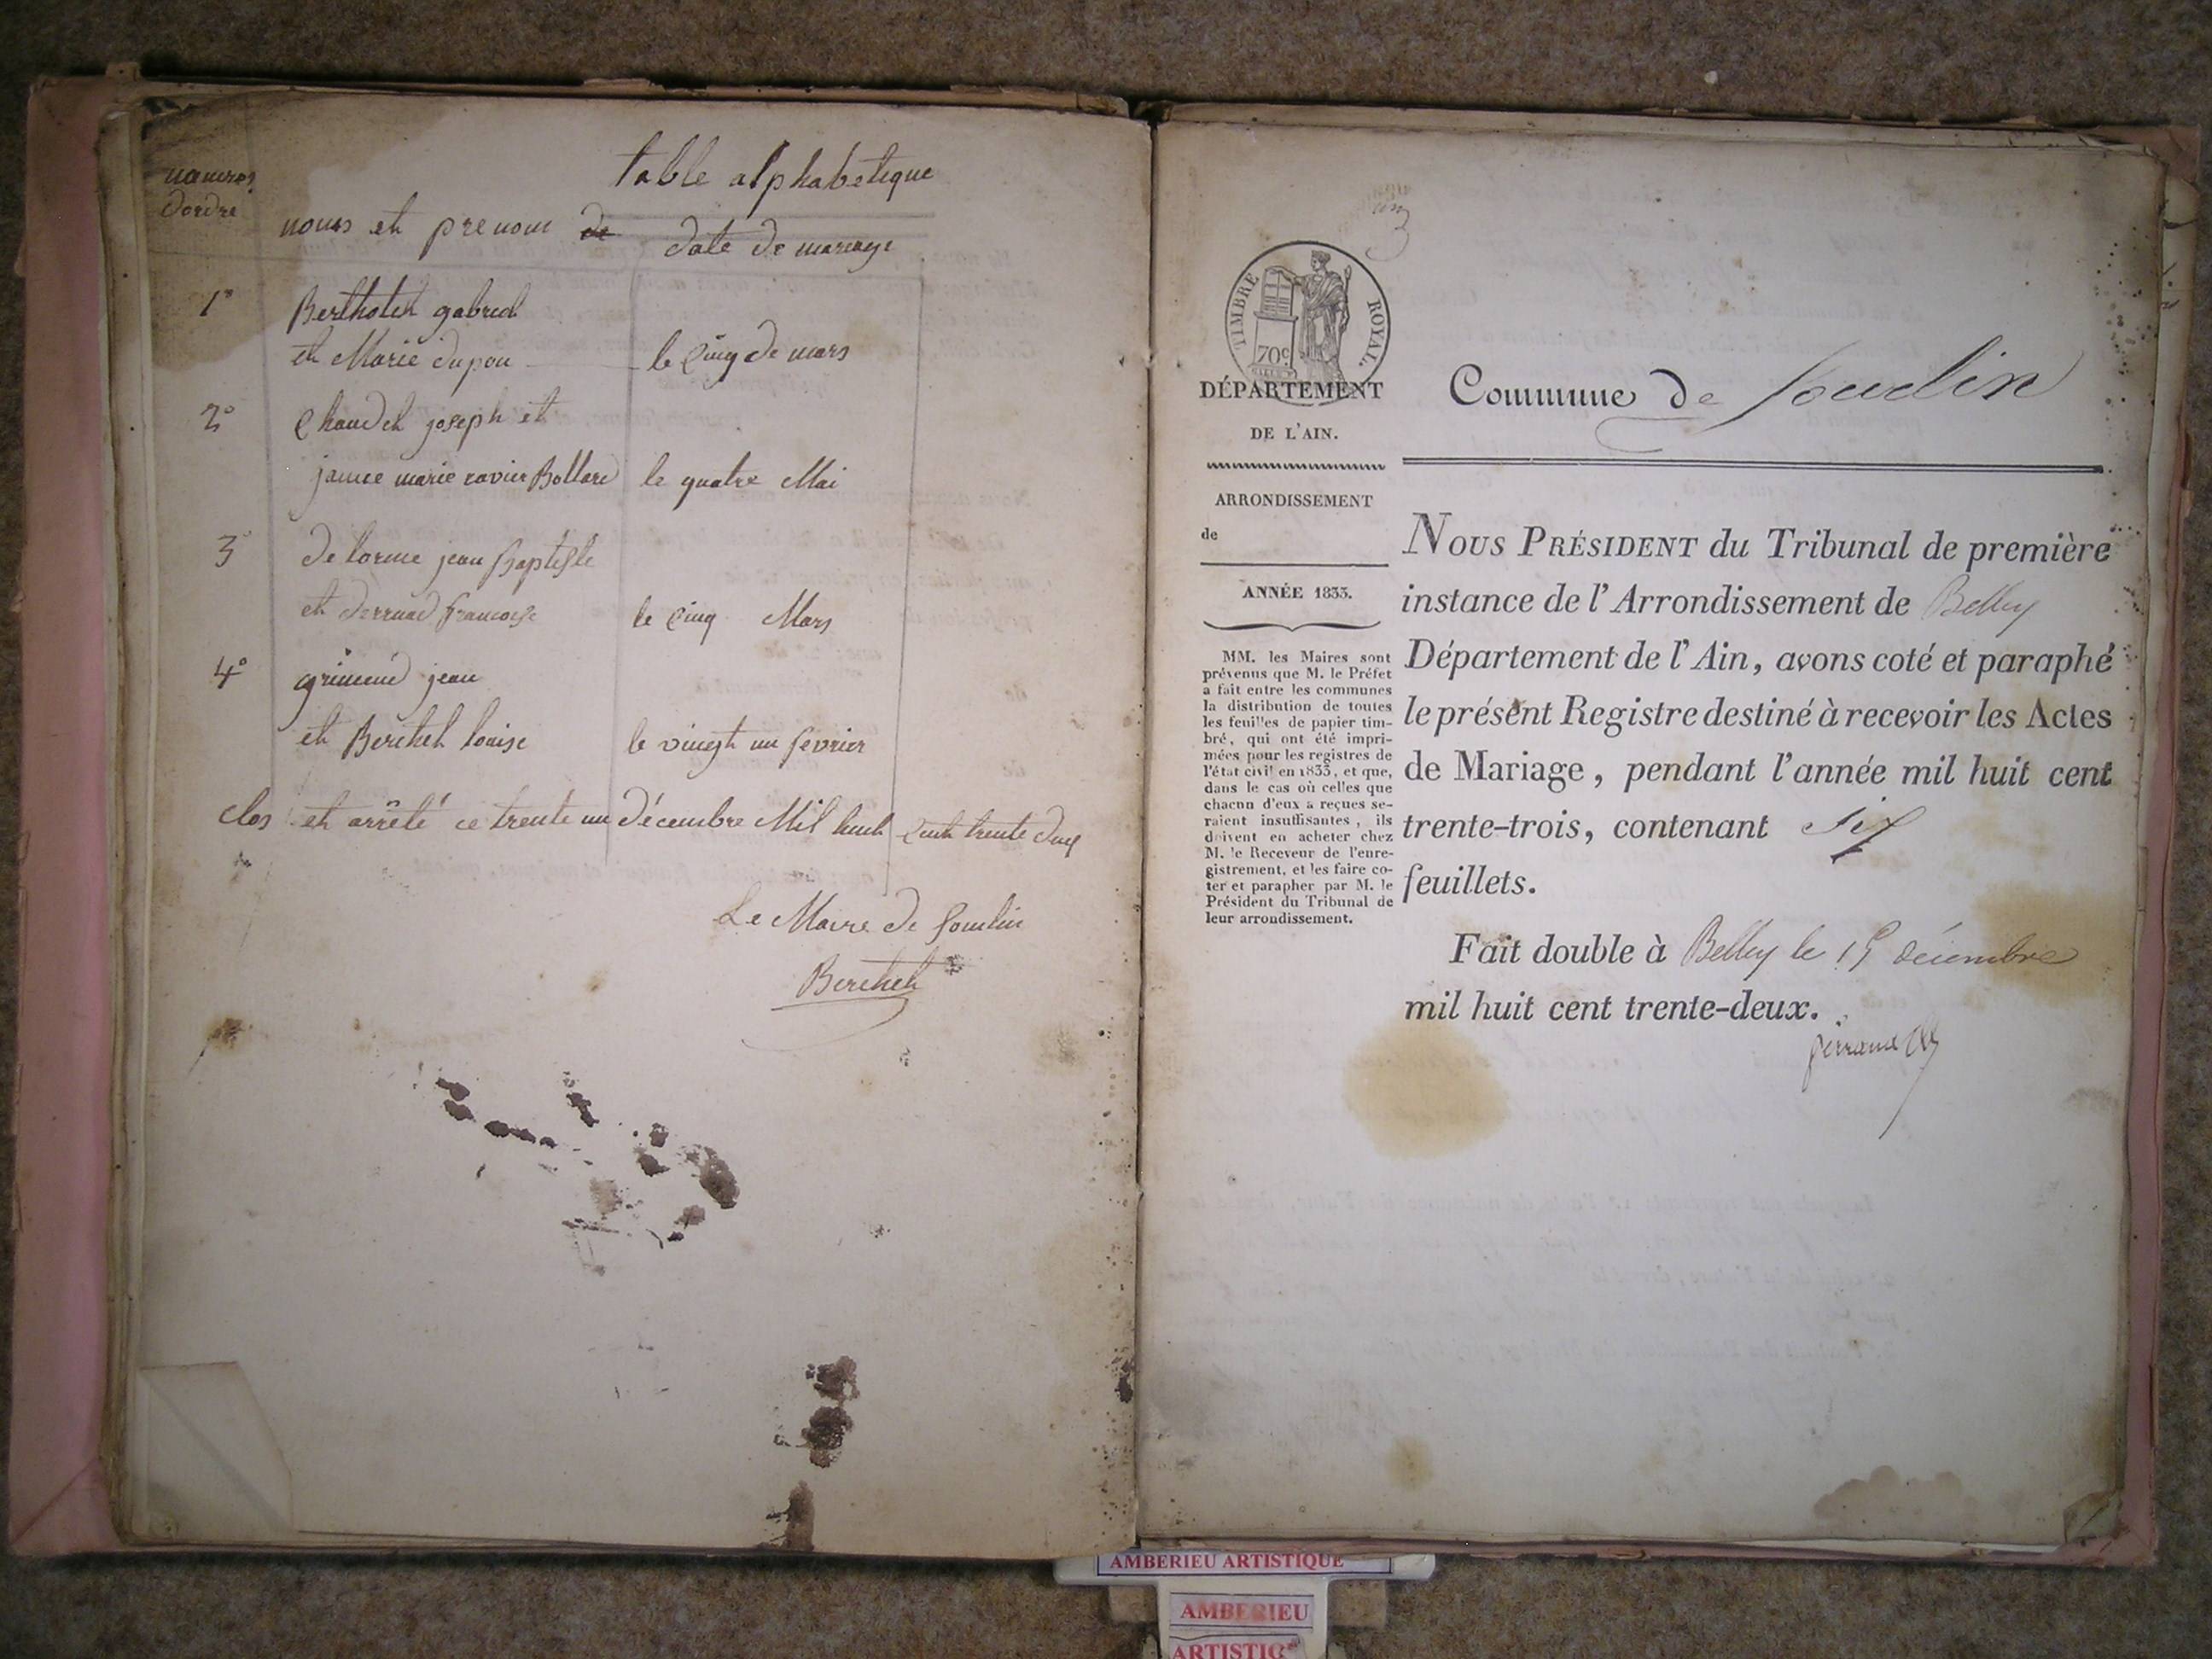 table alphabetique
numeros
dordre
noms et prenom de
date de mariage
1°
Berthetet gabriel
et Marie dupon
le cinq de mars
2°
Chaudet joseph et
janne marie ravier Bollard
le quatre Mai
3°
de lorme jean Baptiste
et derruad francoise
le cinq Mars
4°
grimend jean
et Berthet louise
le vingt un fevrier
clos et arrêté ce trente un décembre Mil huit Cent trente deux
Le Maire de Soudin
Berthet
TIMBRE ROYAL.
70c
DÉPARTEMENT
DE L'AIN.
ARRONDISSEMENT
de
ANNÉE 1833.
MM. les Maires sont
prévenus que M. le Préfet
a fait entre les communes
la distribution de toutes
les feuilles de papier tim-
bré, qui ont été impri-
mées pour les registres de
l'état civil en 1833, et que,
dans le cas où celles que
chacun d'eux a reçues se-
raient insuffisantes, ils
doivent en acheter chez
M. le Receveur de l'enre-
gistrement, et les faire co-
ter et parapher par M. le
Président du Tribunal de
leur arrondissement.
Commune de Soudin
NOUS PRÉSIDENT du Tribunal de première
instance de l'Arrondissement de Belley
Département de l'Ain, avons coté et paraphé
le présent Registre destiné à recevoir les Actes
de Mariage, pendant l'année mil huit cent
trente-trois, contenant Six
feuillets.
Fait double à Belley le 15 décembre
mil huit cent trente-deux.
AMBERIEU ARTISTIQUE
AMBERIEU
ARTISTIQ